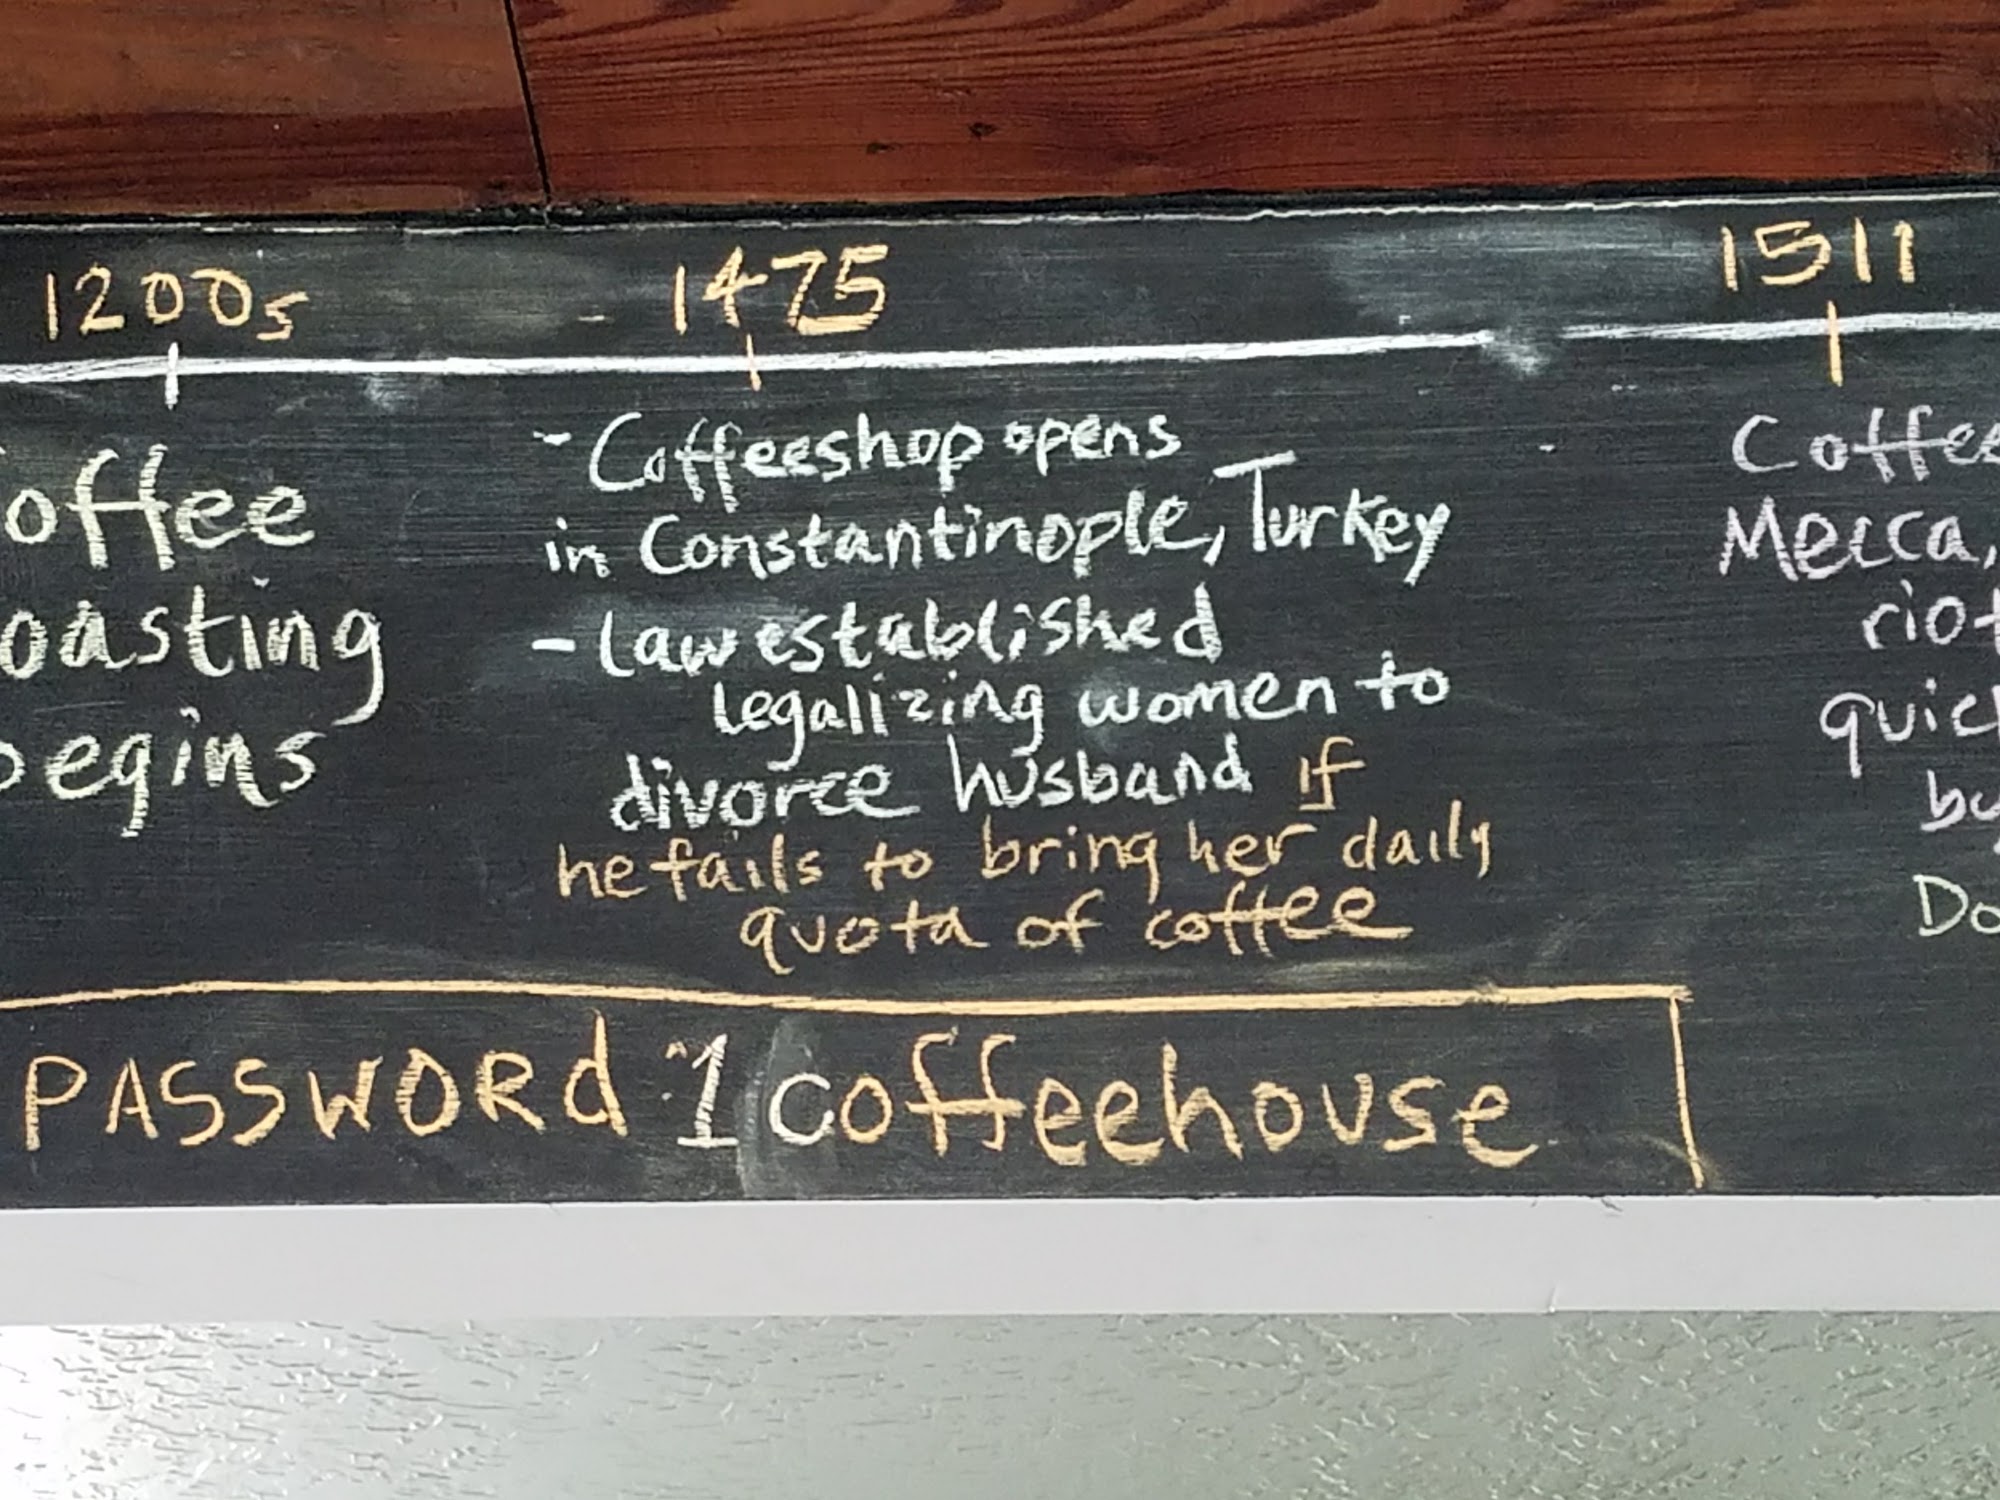 1200s
offee
oasting
begins
1475
- Coffeeshop opens
in Constantinople, Turkey
- Law established
legalizing women to
divorce husband if
he fails to bring her daily
quota of coffee
1511
Coffee
Mecca,
riot
quick
bu
Do
PASSWORd : 1coffeehouse